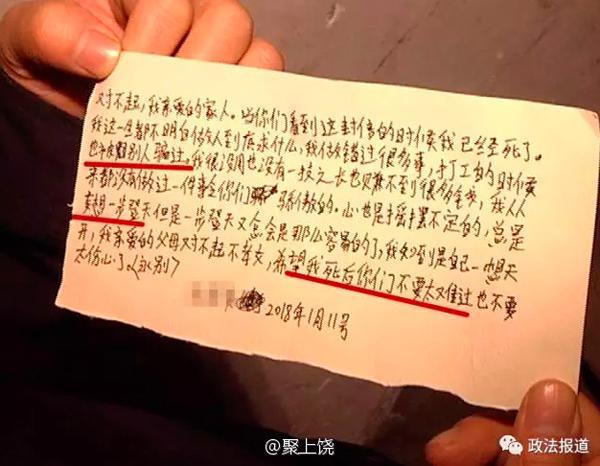 对不起,我亲爱的家人。当你们看到这封信的时候我已经死了。
我这一生都不明白做人到底求什么,我做错过很多事,打工的时候
也被别人骗过。我很没用也没有一技之长也赚不到很多金钱,我从
来都没有做过一件事令你们骄傲的。心也是摇摆不定的,总是
想一步登天但是一步登天又怎会是那么容易的了,我知到是自己一想天
开,我亲爱的父母对不起不孝女,希望我死后你们不要太难过也不要
太伤心了(永别)
2018年1月11号
@聚上饶
政法报道